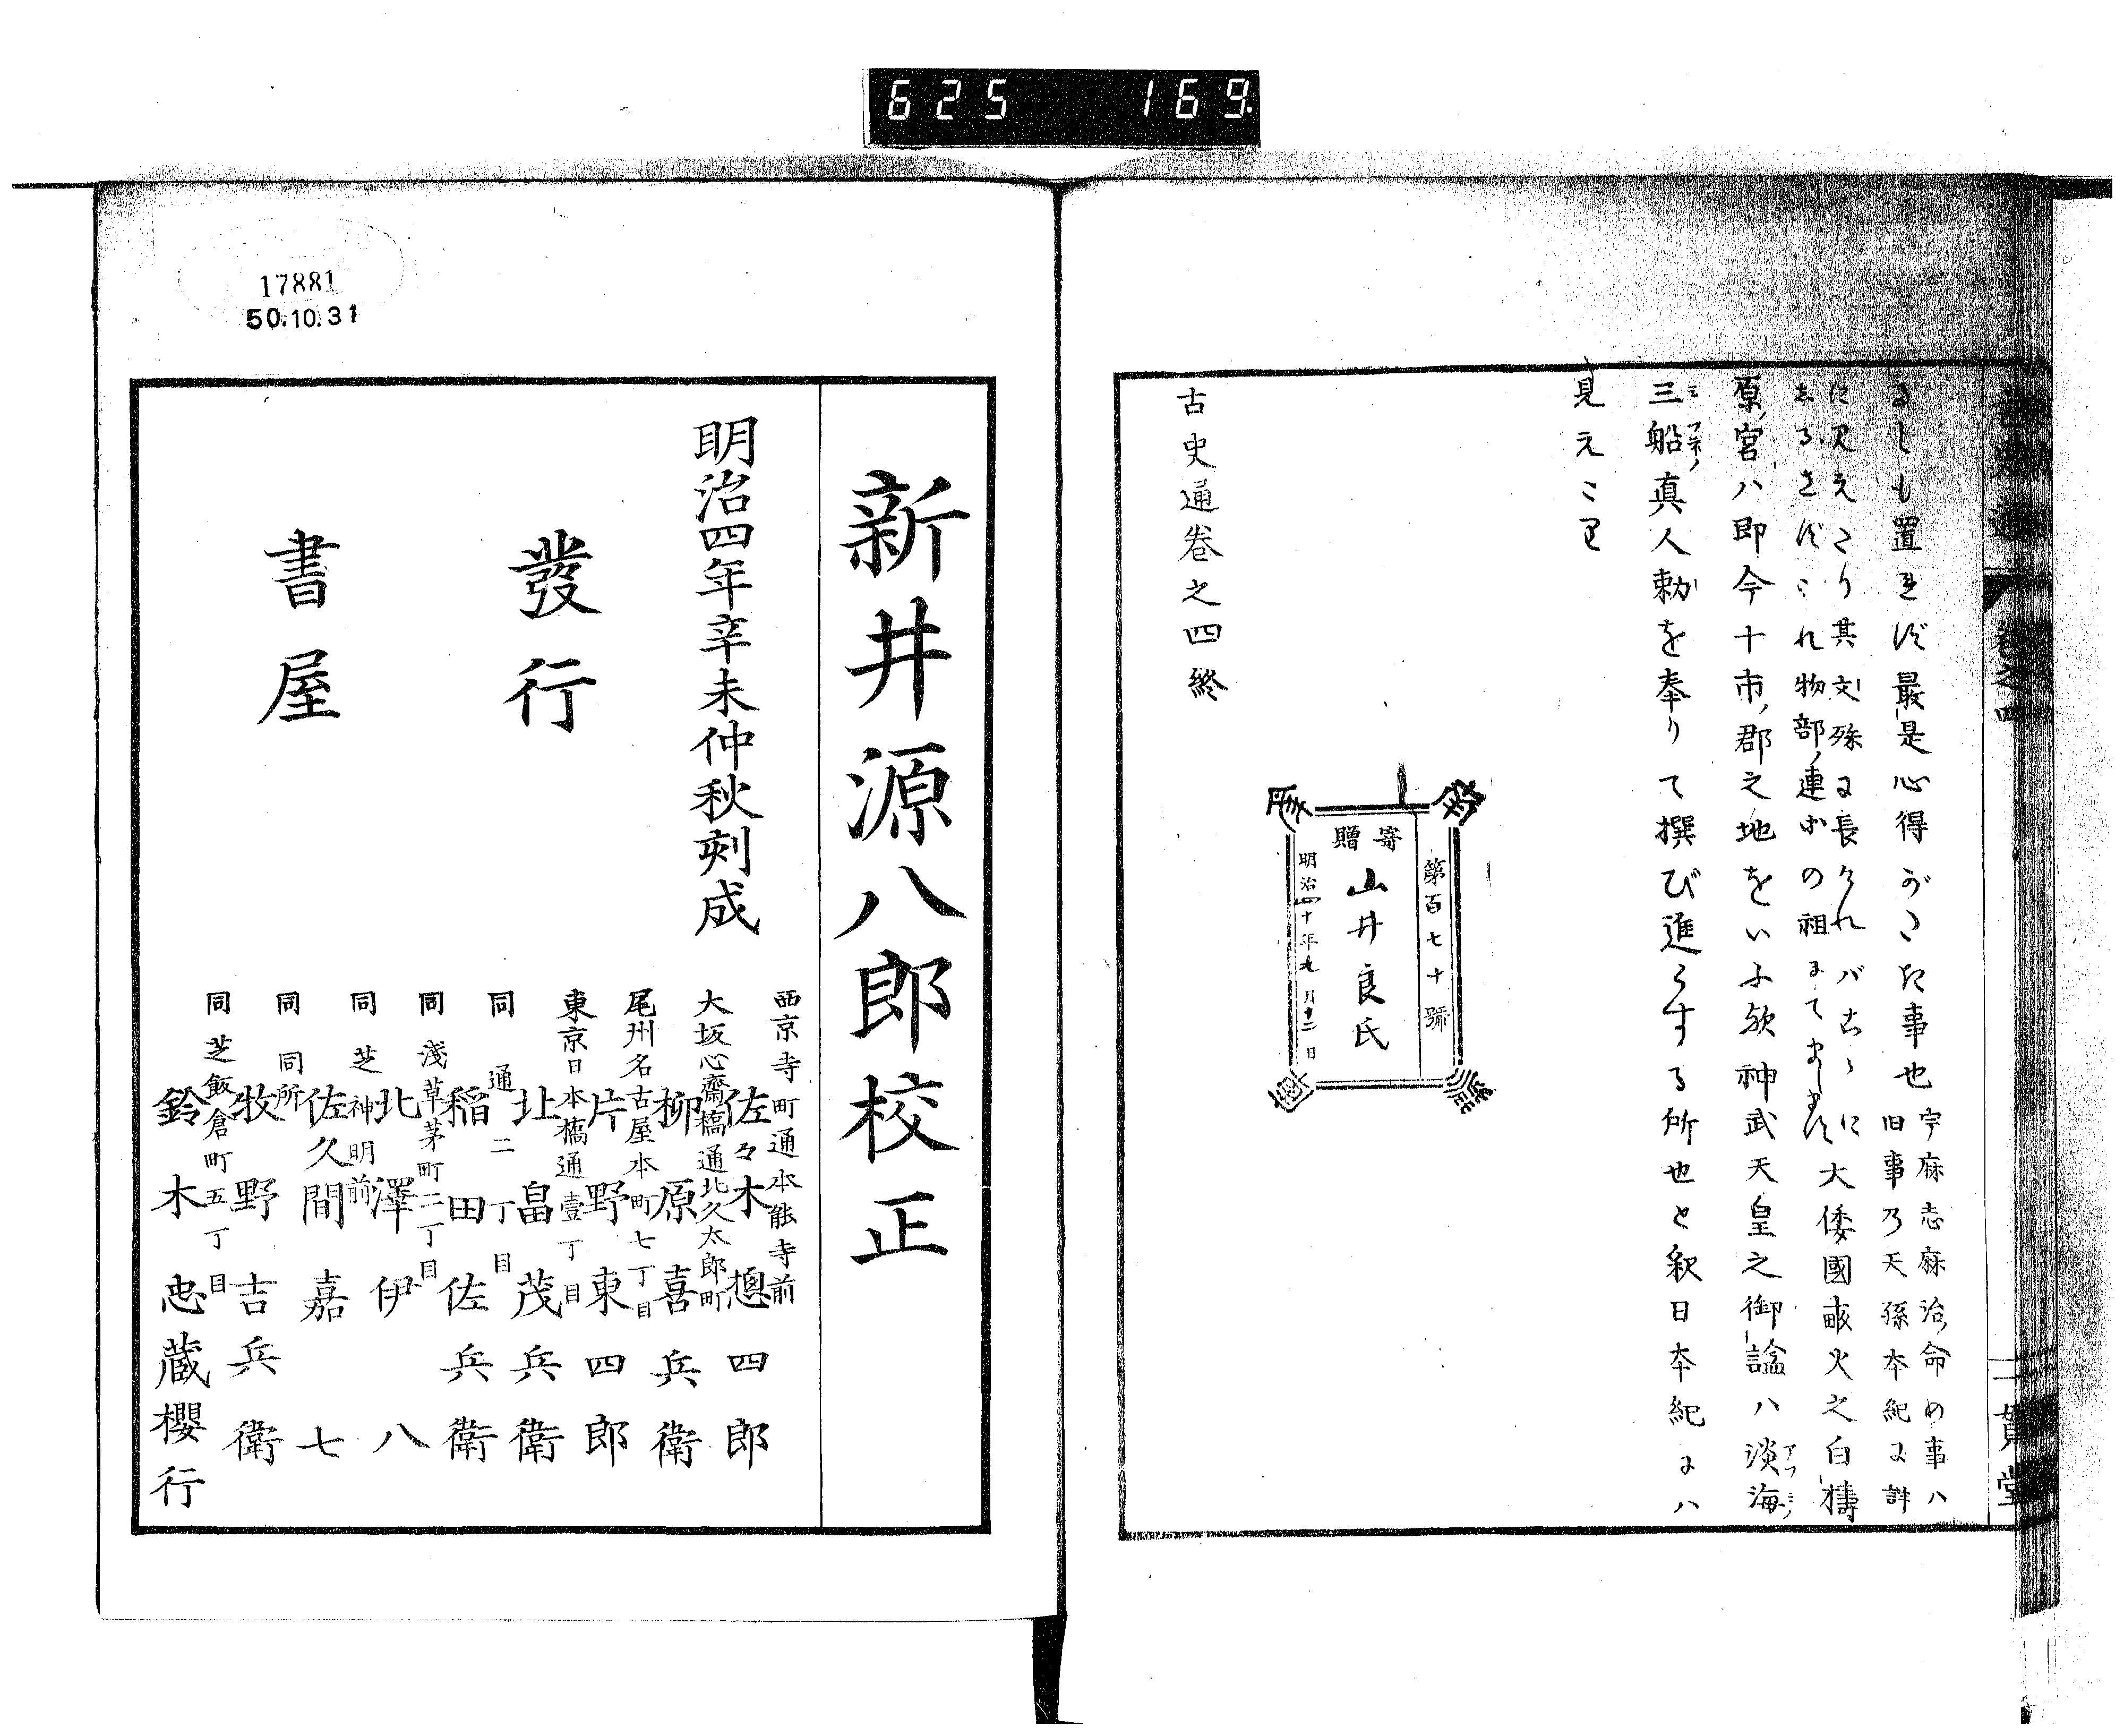 625 169.
古史通
卷之四
一貫堂
るしも置きしは最是心得がたき事也
宇麻志麻治命の事ハ
旧事乃天孫本紀に詳
に見えたり其文殊に長けれバこゝに
しるさずこれ物部ノ連等の祖にてましき
大倭國畝火之白檮
原ノ宮ハ即今十市ノ郡之地をいふ歟神武天皇之御謚ハ淡海
アフミノ
三船真人勅を奉りて撰び進らする所也と釈日本紀にハ
ミフネノ
見えたり
古史通卷之四終
第百七十號
寄贈
山井良氏
明治四十年九月十二日
17881
50.10.31
新井源八郎校正
明治四年辛未仲秋刻成
發行
書屋
西京寺町通本能寺前
佐々木惣四郎
大坂心齋橋通北久太郎町
柳原喜兵衛
尾州名古屋本町七丁目
片野東四郎
東京日本橋通壹丁目
北畠茂兵衛
同通二丁目
稲田佐兵衛
同淺草茅町二丁目
北澤伊八
同芝神明前
佐久間嘉七
同同所
牧野吉兵衛
同芝飯倉町五丁目
鈴木忠蔵櫻行